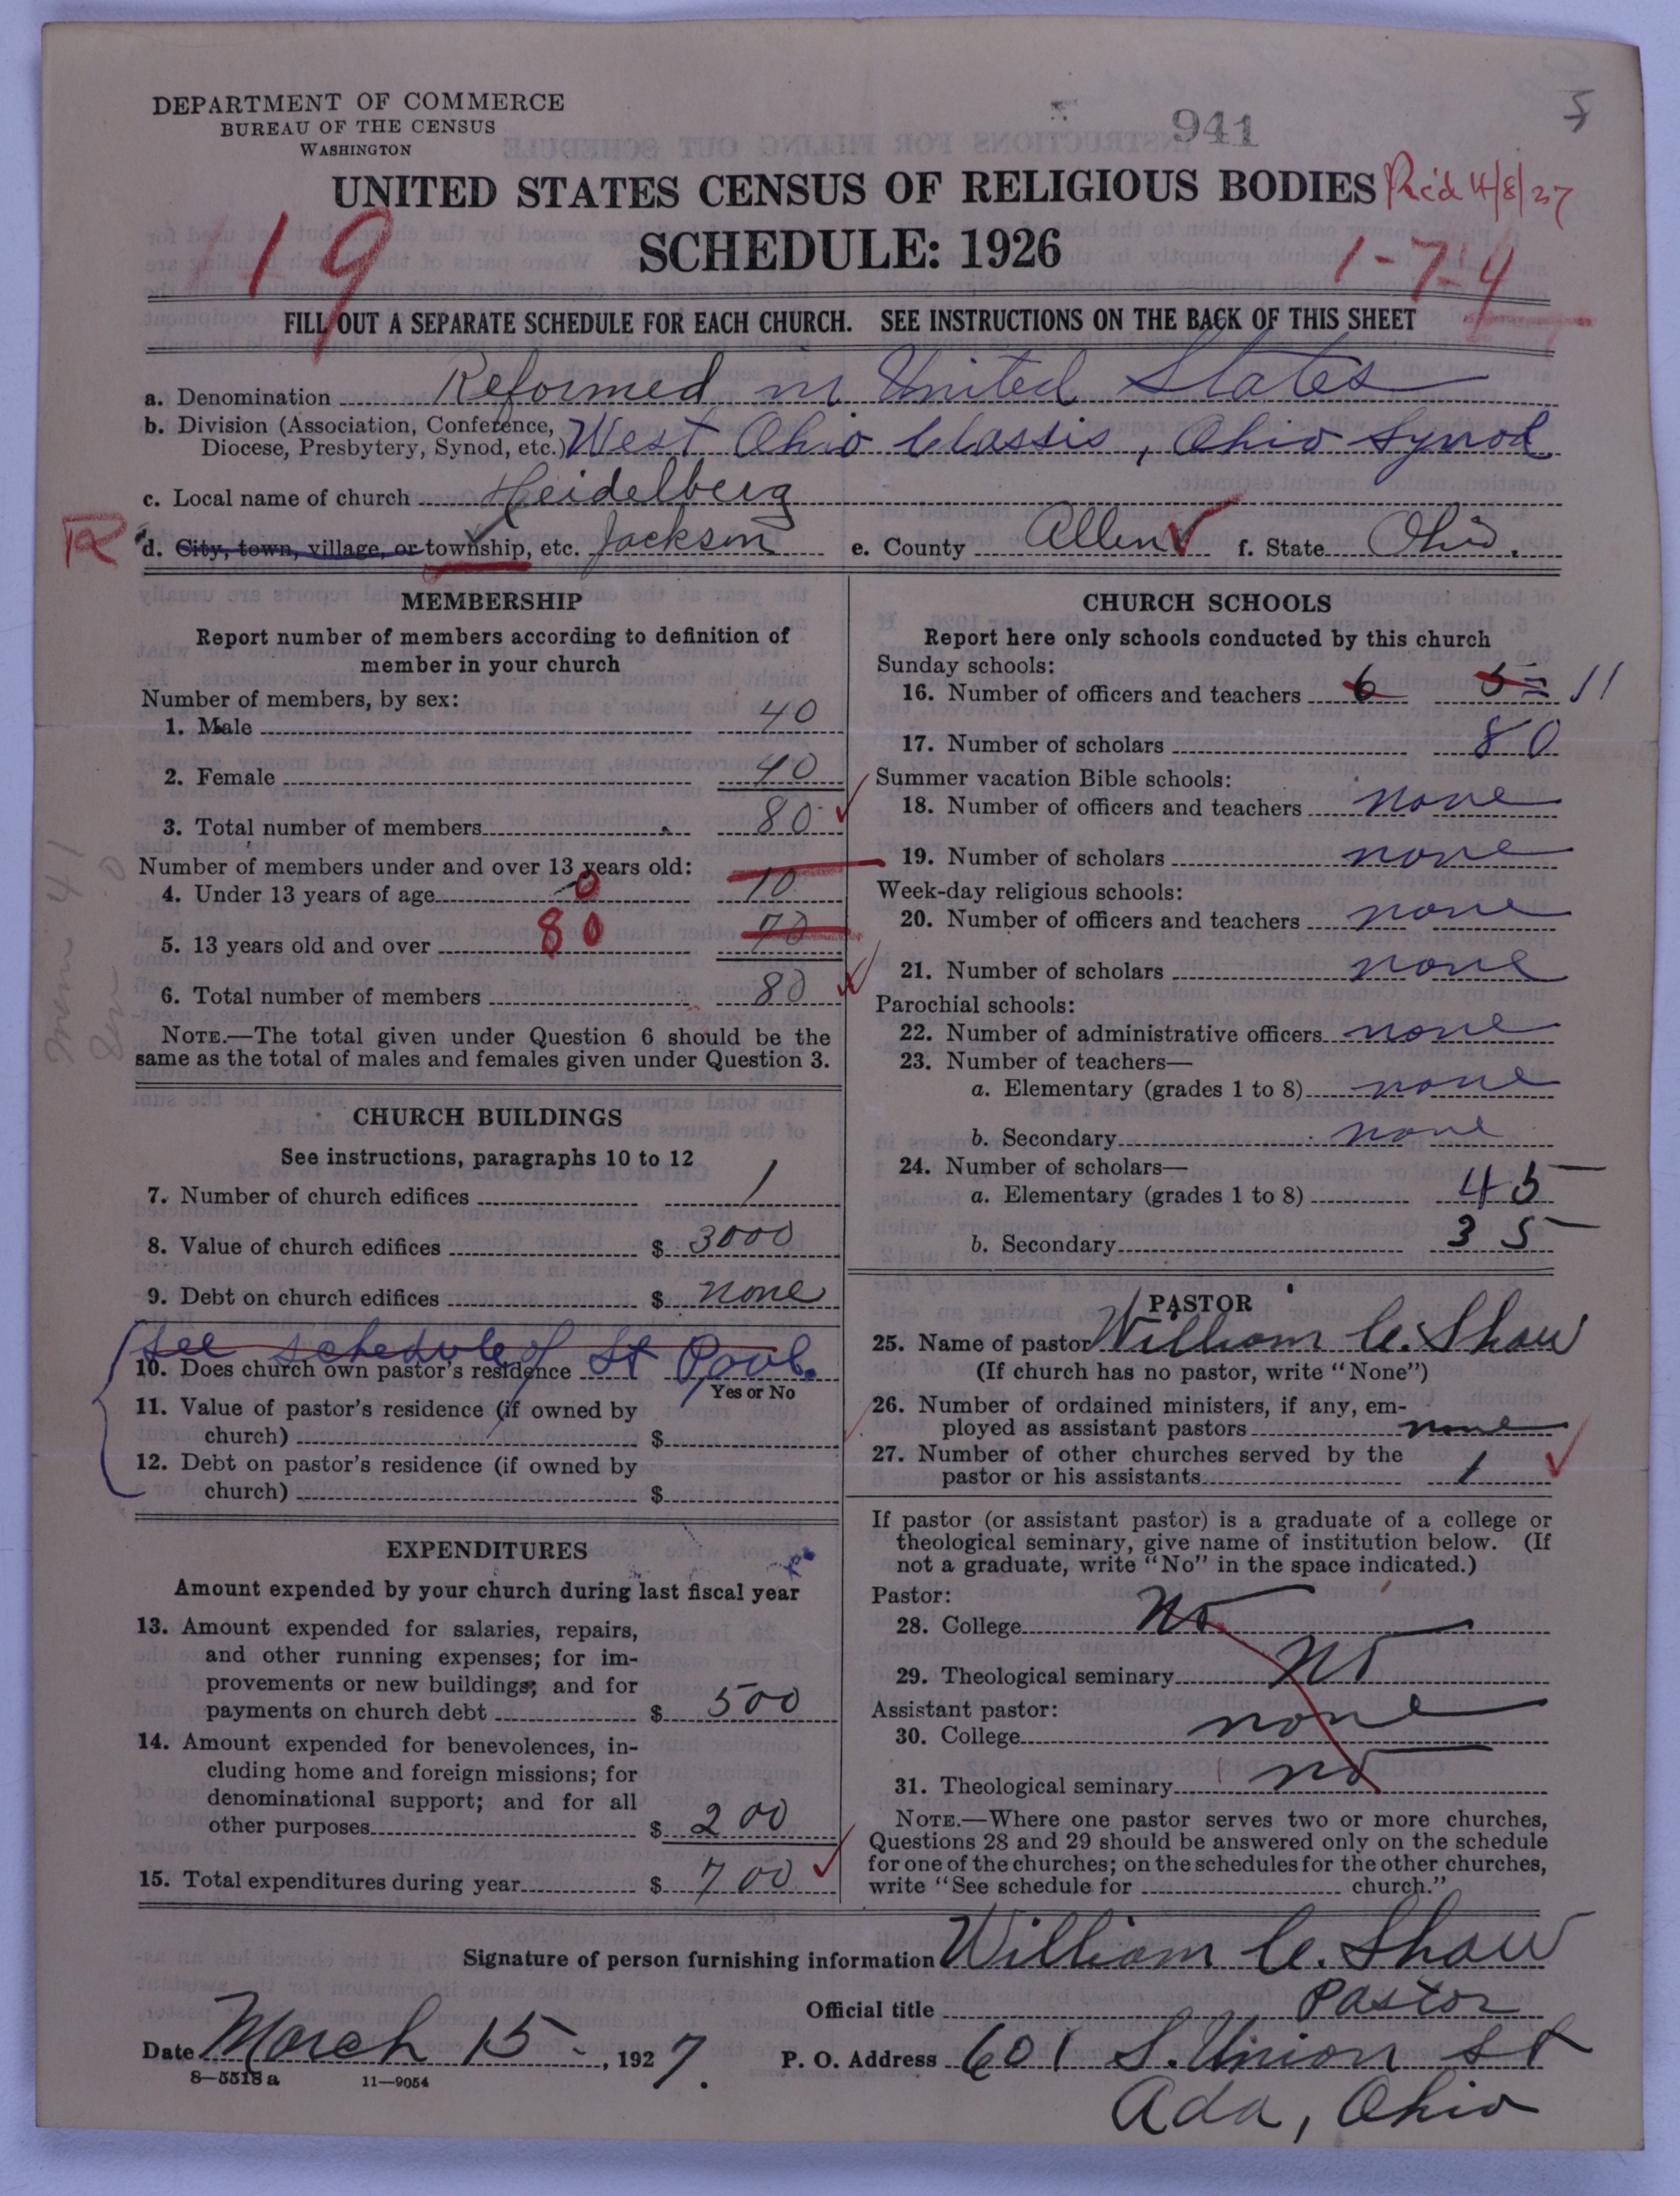 DEPARTMENT OF COMMERCE
BUREAU OF THE CENSUS
WASHINGTON
941
5
UNITED STATES CENSUS OF RELIGIOUS BODIES Rc'd 4/8/27
SCHEDULE: 1926
19
1-7-4
FILL OUT A SEPARATE SCHEDULE FOR EACH CHURCH. SEE INSTRUCTIONS ON THE BACK OF THIS SHEET
a. Denomination Reformed in United States
b. Division (Association, Conference,
Diocese, Presbytery, Synod, etc.) West Ohio Classis, Ohio Synod
c. Local name of church Heidelberg
R d. City, town, village, or township, etc. Jackson e. County Allen f. State Ohio.
MEMBERSHIP
Report number of members according to definition of
member in your church
Number of members, by sex:
1. Male 40
2. Female 40
3. Total number of members 80
Number of members under and over 13 years old:
4. Under 13 years of age 0 10
5. 13 years old and over 80 70
6. Total number of members 80
NOTE.—The total given under Question 6 should be the
same as the total of males and females given under Question 3.
Mem 41
CHURCH BUILDINGS
See instructions, paragraphs 10 to 12
7. Number of church edifices 1
8. Value of church edifices $ 3000
9. Debt on church edifices $ none
See schedule of St Paul.
10. Does church own pastor's residence
Yes or No
11. Value of pastor's residence (if owned by
church) $
12. Debt on pastor's residence (if owned by
church) $
EXPENDITURES
Amount expended by your church during last fiscal year
13. Amount expended for salaries, repairs,
and other running expenses; for im-
provements or new buildings; and for
payments on church debt $ 500
14. Amount expended for benevolences, in-
cluding home and foreign missions; for
denominational support; and for all
other purposes $ 200
15. Total expenditures during year $ 700
CHURCH SCHOOLS
Report here only schools conducted by this church
Sunday schools:
16. Number of officers and teachers 6 5 = 11
17. Number of scholars 80
Summer vacation Bible schools:
18. Number of officers and teachers none
19. Number of scholars none
Week-day religious schools:
20. Number of officers and teachers none
21. Number of scholars none
Parochial schools:
22. Number of administrative officers none
23. Number of teachers—
a. Elementary (grades 1 to 8) none
b. Secondary none
24. Number of scholars—
a. Elementary (grades 1 to 8) 45
b. Secondary 35
PASTOR
25. Name of pastor William C. Shaw
(If church has no pastor, write "None")
26. Number of ordained ministers, if any, em-
ployed as assistant pastors none
27. Number of other churches served by the
pastor or his assistants 1
If pastor (or assistant pastor) is a graduate of a college or
theological seminary, give name of institution below. (If
not a graduate, write "No" in the space indicated.)
Pastor:
28. College No
29. Theological seminary No
Assistant pastor:
30. College none
31. Theological seminary no
NOTE.—Where one pastor serves two or more churches,
Questions 28 and 29 should be answered only on the schedule
for one of the churches; on the schedules for the other churches,
write "See schedule for church."
Signature of person furnishing information William C. Shaw
Official title Pastor
Date March 15, 1927. P. O. Address 601 S. Union St
8—5518a 11—9054
Ada, Ohio